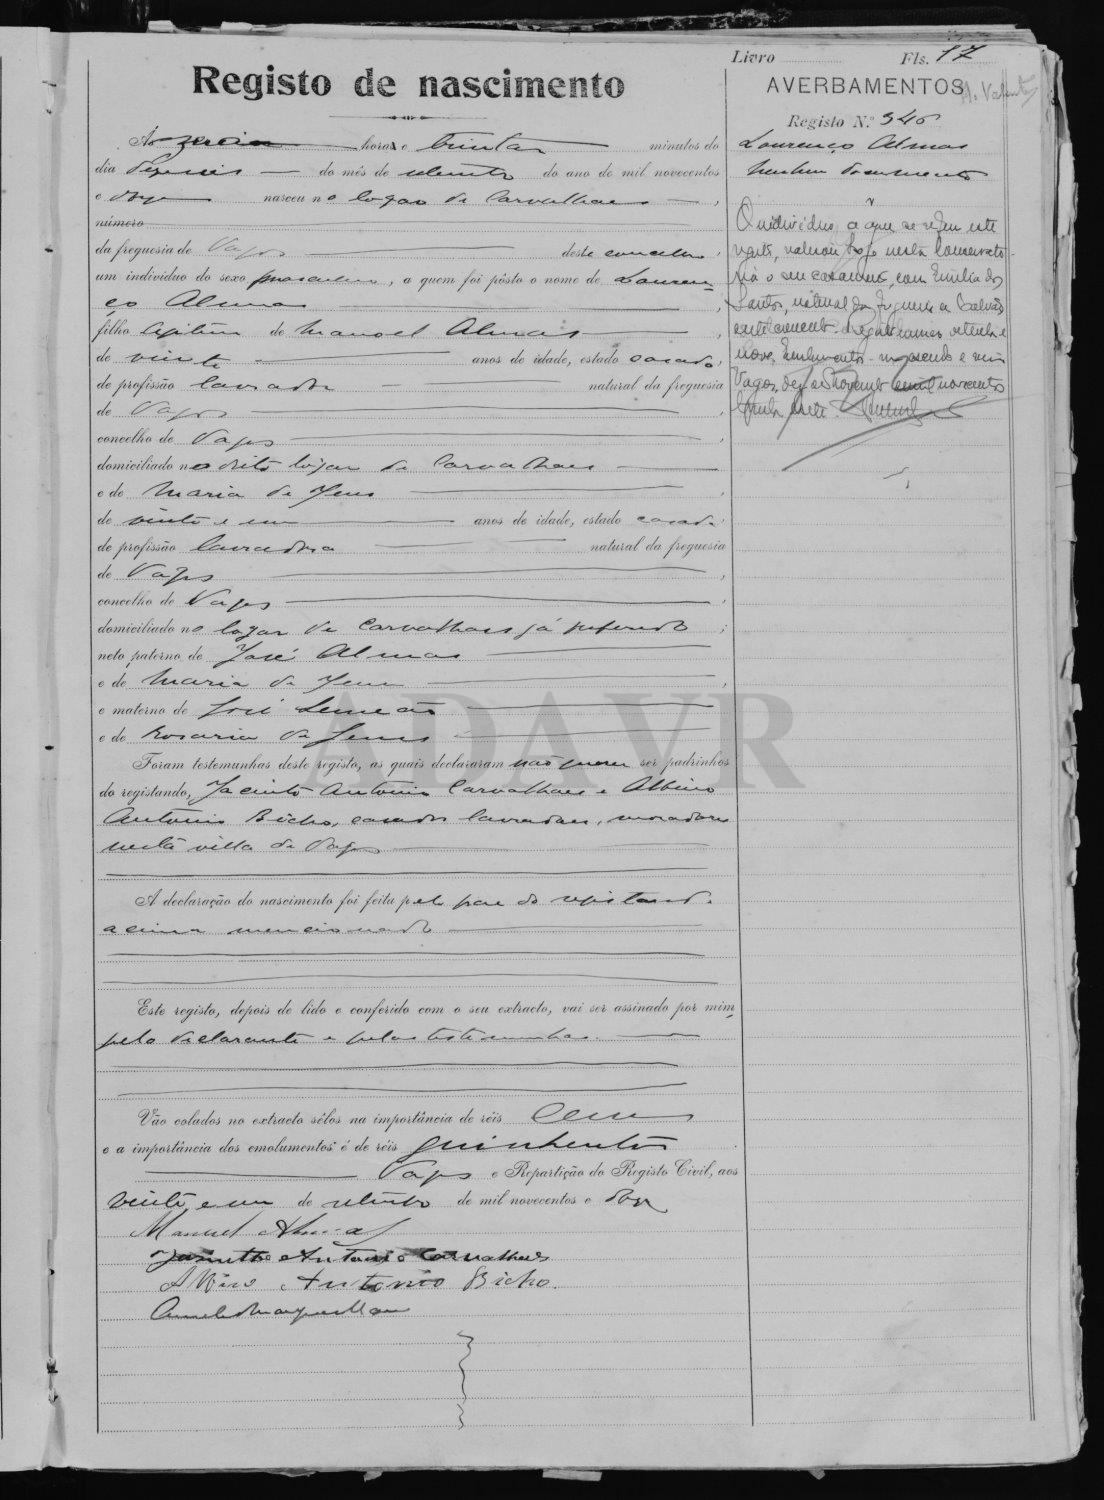 Livro Fls. 17
Registo de nascimento
AVERBAMENTOS
Registo N.º 346
Lourenço Almas
Nenhum documento
O individuo a que se refere este
registo, realizou hoje nesta Conservato-
ria o seu casamento, com Emilia dos
Santos, natural da freguesia de Calvão
Vagos, dez de Novembro de mil novecentos
trinta e sete.
Ás zero horas e trinta minutos do
dia dezeseis do mês de setembro do ano de mil novecentos
e doze nasceu no logar de Carvalhaes,
número
da freguesia de Vagos deste concelho,
um individuo do sexo masculino, a quem foi pôsto o nome de Louren-
ço Almas
filho legitimo de Manoel Almas,
de vinte anos de idade, estado casado,
de profissão lavrador natural da freguesia
de Vagos,
concelho de Vagos,
domiciliado no dito logar de Carvalhaes
e de Maria de Jesus,
de vinte e um anos de idade, estado casada,
de profissão lavradora natural da freguesia
de Vagos,
concelho de Vagos,
domiciliado no logar de Carvalhaes já referido;
neto paterno de José Almas
e de Maria de Jesus,
e materno de José Simeão
e de Rosaria de Jesus
Foram testemunhas deste registo, as quais declararam não querer ser padrinhos
do registando, Jacinto Antonio Carvalhaes e Albino
Antonio Bicho, casados lavradores, moradores
nesta villa de Vagos
A declaração do nascimento foi feita pelo pae do registando
acima mencionado
Este registo, depois de lido e conferido com o seu extracto, vai ser assinado por mim,
pelo declarante e pelas testemunhas.
Vão colados no extracto sêlos na importância de réis Cem
e a importância dos emolumentos é de réis quinhentos
Vagos e Repartição do Registo Civil, aos
vinte e um de setembro de mil novecentos e doze
Manuel Almas
Jasintho Antonio Carvalhaes
Albino Antonio Bicho.
ADAVR